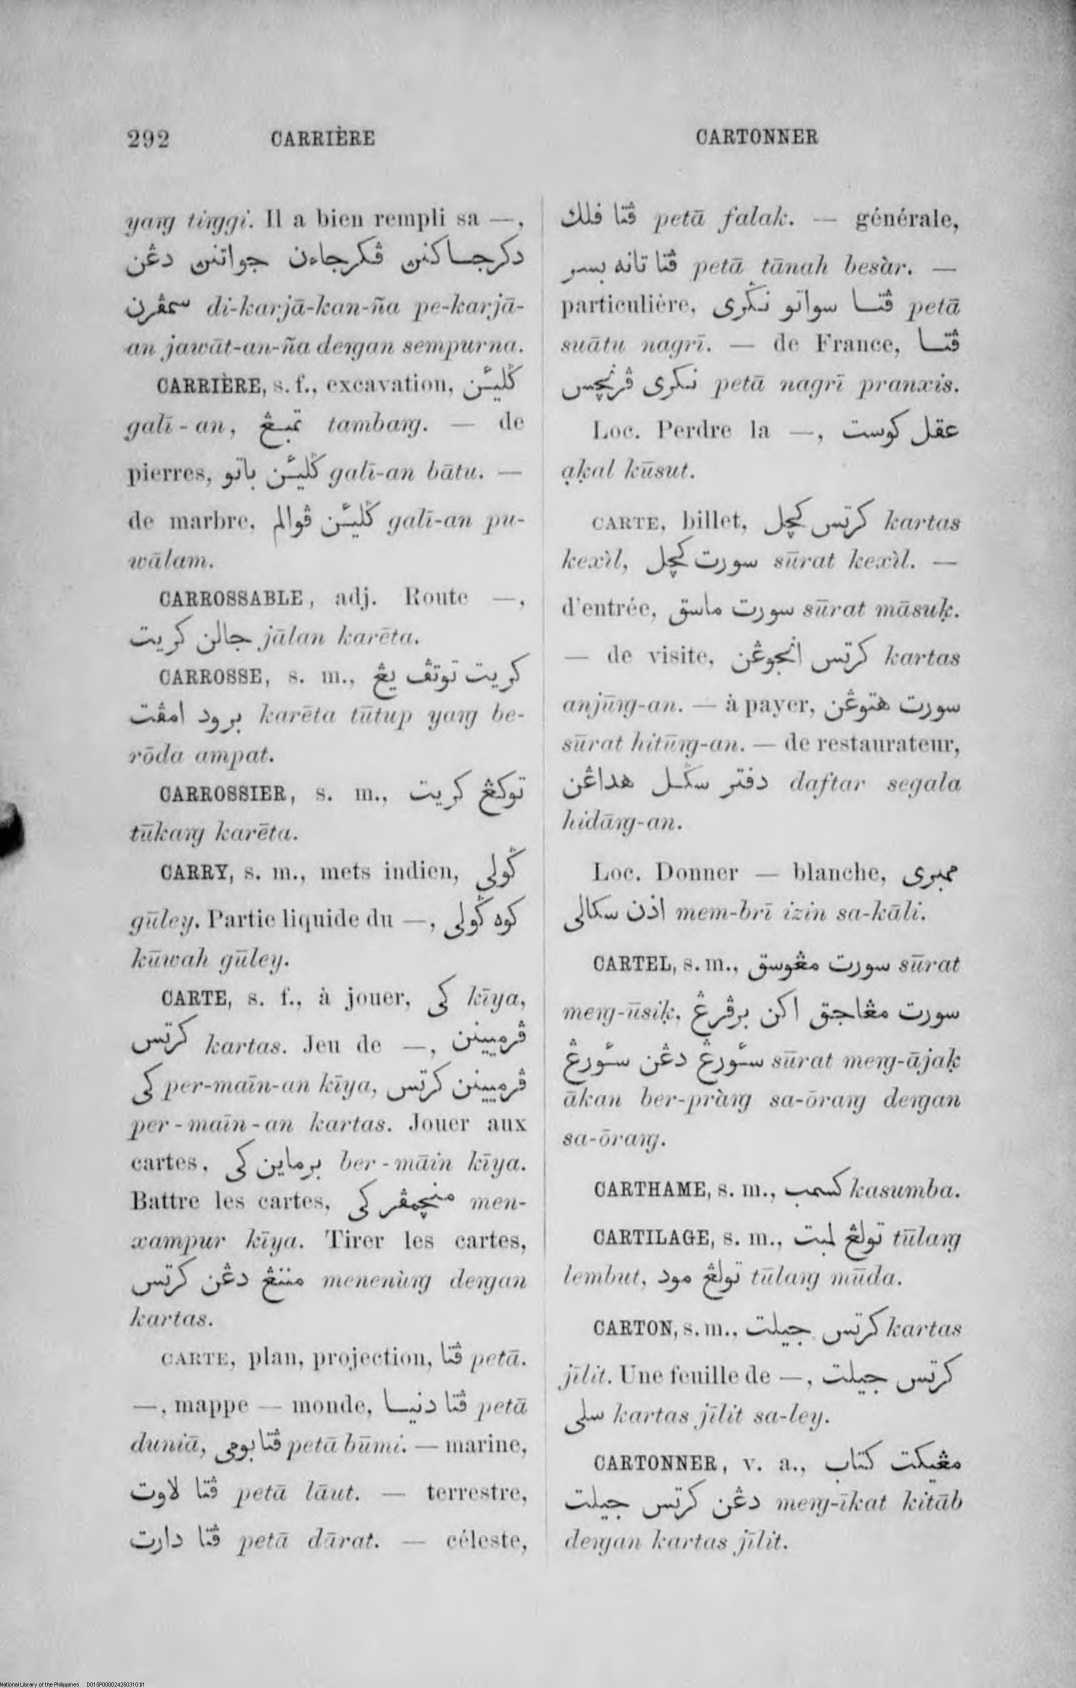 292 CARRIÈRE CARTONNER
yaŋ tiŋgi. Il a bien rempli sa —,
دكرجاكنڽ ڤكرجاءن جواتنڽ دڠن
سمڤرن di-karjā-kan-ña pe-karjā-
an jawāt-an-ña deŋan sempurna.
CARRIÈRE, s. f., excavation, ڬليئن
galī-an, تمبڠ tambaŋ. — de
pierres, ڬليئن باتو galī-an bātu. —
de marbre, ڬليئن ڤوالم galī-an pu-
wālam.
CARROSSABLE, adj. Route —,
جالن كريت jālan karēta.
CARROSSE, s. m., كريت توتڤ يڠ
برود امڤت karēta tūtup yaŋ be-
rōda ampat.
CARROSSIER, s. m., توكڠ كريت
tūkaŋ karēta.
CARRY, s. m., mets indien, ڬولى
gūley. Partie liquide du —, كوه ڬولى
kūwah gūley.
CARTE, s. f., à jouer, كى kīya,
كرتس kartas. Jeu de —, ڤرميينن
كى per-maīn-an kīya, ڤرميينن كرتس
per-maīn-an kartas. Jouer aux
cartes, برماين كى ber-māin kīya.
Battre les cartes, منچمڤر كى men-
xampur kīya. Tirer les cartes,
مننڠ دڠن كرتس menenùŋ deŋan
kartas.
CARTE, plan, projection, ڤتا petā.
—, mappe — monde, ڤتا دنيا petā
duniā, ڤتا بومى petā būmi. — marine,
ڤتا لاوت petā lāut. — terrestre,
ڤتا دارت petā dārat. — céleste,
ڤتا فلك petā falak. — générale,
ڤتا تانه بسر petā tānah besàr. —
particulière, ڤتا سواتو نڬرى petā
suātu nagrī. — de France, ڤتا
نڬرى ڤرنچس petā nagrī pranxis.
Loc. Perdre la —, عقل كوست
ạḳal kūsut.
CARTE, billet, كرتس كچل kartas
kexìl, سورت كچل sūrat kexìl. —
d'entrée, سورت ماسق sūrat māsuḳ.
— de visite, كرتس انجوڠن kartas
anjūŋ-an. — à payer, سورت هتوڠن
sūrat hitūŋ-an. — de restaurateur,
دفتر سڬل هداڠن daftar segala
hidāŋ-an.
Loc. Donner — blanche, ممبرى
اذن سكالى mem-brī izin sa-kāli.
CARTEL, s. m., سورت مڠوسق sūrat
meŋ-ūsiḳ, سورت مڠاجق اكن برڤرڠ
سئورڠ دڠن سئورڠ sūrat meŋ-ājaḳ
ākan ber-pràŋ sa-ōraŋ deŋan
sa-ōraŋ.
CARTHAME, s. m., كسمب kasumba.
CARTILAGE, s. m., تولڠ لمبت tūlaŋ
lembut, تولڠ مود tūlaŋ mūda.
CARTON, s. m., كرتس جيلت kartas
jīlit. Une feuille de —, كرتس جيلت
سلى kartas jīlit sa-ley.
CARTONNER, v. a., مڠيكت كتاب
دڠن كرتس جيلت meŋ-īkat kitāb
deŋan kartas jīlit.
National Library of the Philippines